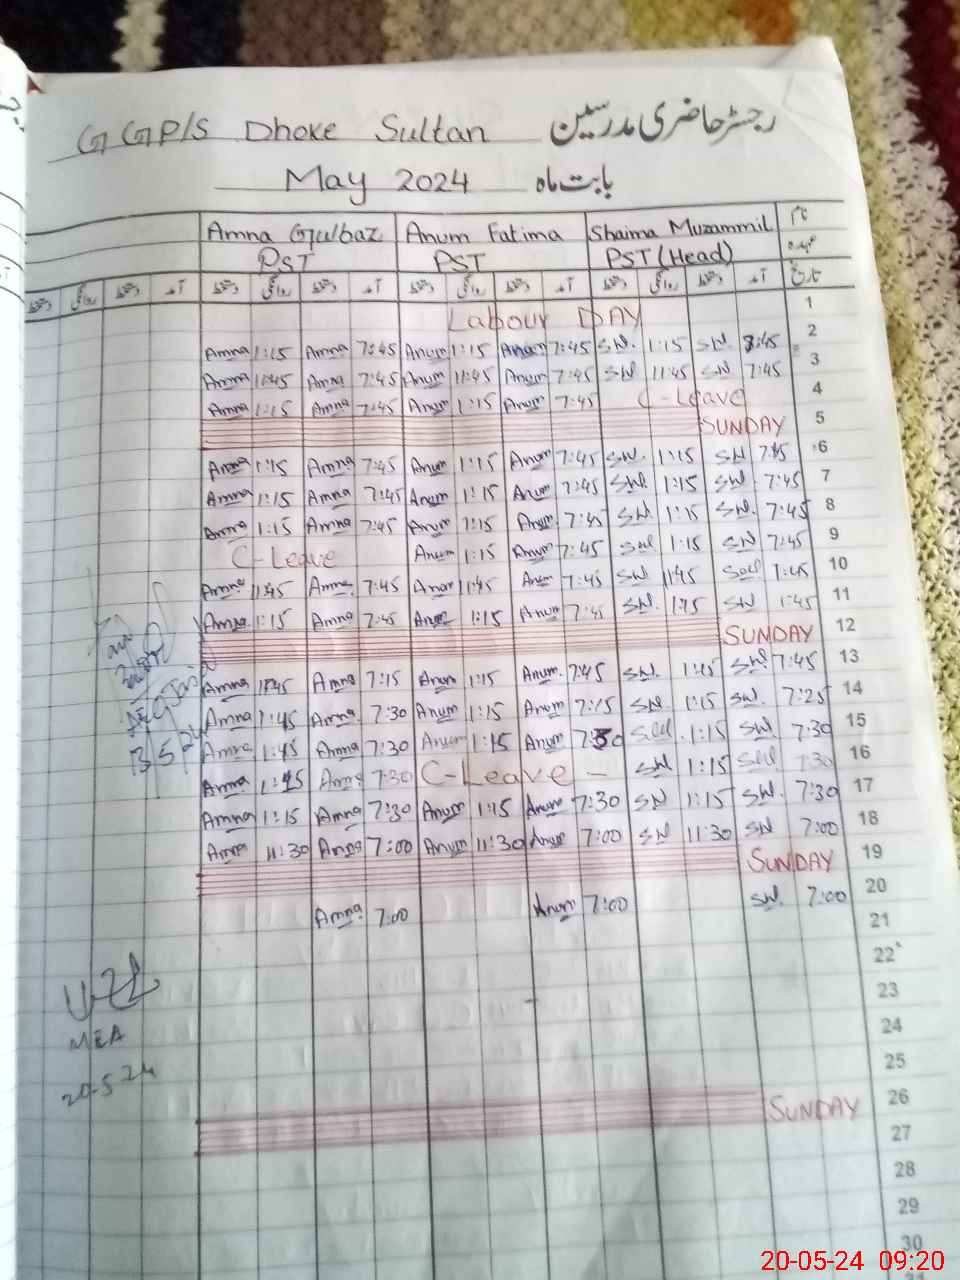 GGP/S Dhoke Sultan رجسٹر حاضری مدرسین
May 2024 بابت ماہ
Amna Gulbaz Anum Fatima Shaima Muzammil نام
PST PST PST (Head) عہدہ
دستخط روانگی دستخط آمد دستخط روانگی دستخط آمد دستخط روانگی دستخط آمد دستخط روانگی دستخط آمد تاریخ
Labour DAY 1
Amna 1:15 Amna 7:45 Anum 1:15 Anum 7:45 SW. 1:15 SW. 7:45 2
Amna 11:45 Amna 7:45 Anum 11:45 Anum 7:45 SW 11:45 SW 7:45 3
Amna 1:15 Amna 7:45 Anum 1:15 Anum 7:45 C-Leave 4
SUNDAY 5
Amna 1:15 Amna 7:45 Anum 1:15 Anum 7:45 SW. 1:15 SW 7:45 6
Amna 1:15 Amna 7:45 Anum 1:15 Anum 7:45 SW. 1:15 SW 7:45 7
Amna 1:15 Amna 7:45 Anum 1:15 Anum 7:45 SW. 1:15 SW. 7:45 8
C-Leave Anum 1:15 Anum 7:45 1:15 SW 7:45 9
Amna 11:45 Amna 7:45 Anum 11:45 Anum 7:45 SW 11:45 10
Amna 1:15 Amna 7:45 Anum 1:15 Anum 7:45 SW. 1:15 SW 11
SUNDAY 12
Amna Amna 7:15 Anum 1:15 Anum. 7:45 SW. SW. 7:45 13
Amna 1:45 Amna 7:30 Anum 1:15 Anum 7:15 SW. 1:15 SW. 7:25 14
Amna 1:45 Amna 7:30 Anum 1:15 Anum 7:30 1:15 SW. 7:30 15
Amna 1:45 Amna 7:30 C-Leave - SW 1:15 7:30 16
Amna 1:15 Amna 7:30 Anum 1:15 Anum 7:30 SW 1:15 SW. 7:30 17
Amna 11:30 Amna 7:00 Anum 11:30 Anum 7:00 SW 11:30 SW 7:00 18
SUNDAY 19
Amna 7:00 Anum 7:00 SW. 7:00 20
21
22
23
MEA
20-5 24
24
25
SUNDAY 26
27
28
29
30
20-05-24 09:20